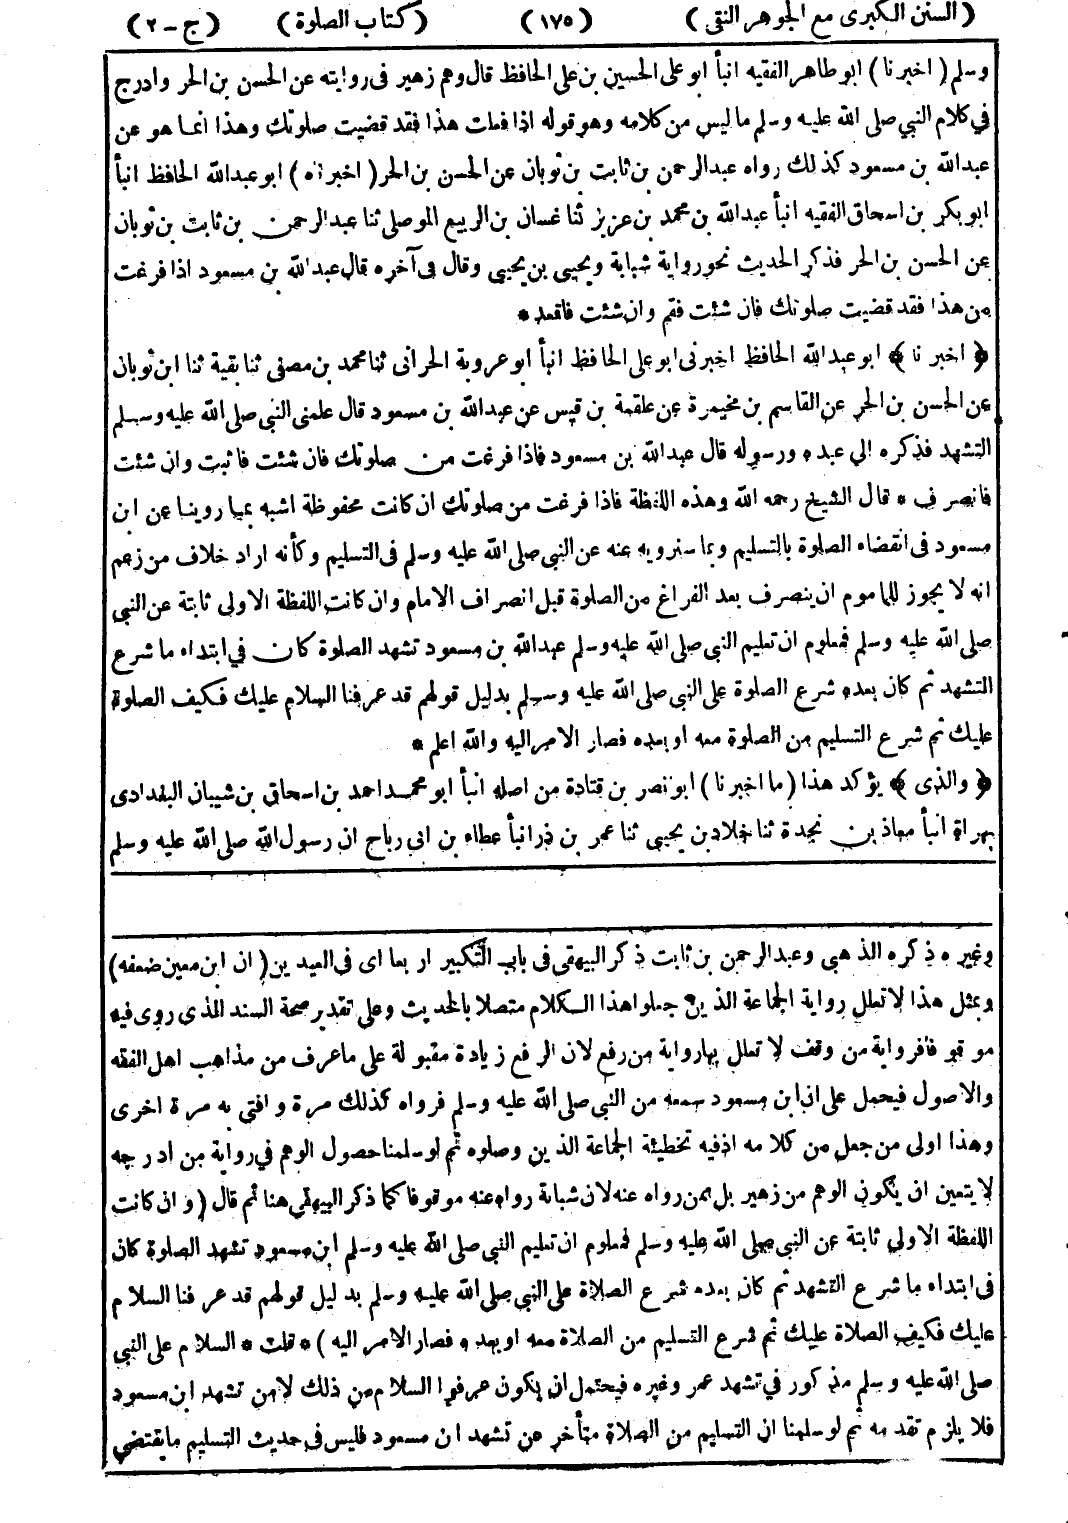 (السنن الكبرى مع الجوهر النقى) (١٧٥) (كتاب الصلوة) (ج - ٢)
وسلم (اخبرنا) ابو طاهر الفقيه انبأ ابو على الحسين بن على الحافظ قال وهم زهير فى روايته عن الحسن بن الحر وادرج
فى كلام النبي صلى الله عليه وسلم ما ليس من كلامه وهو قوله اذا فعلت هذا فقد قضيت صلوتك وهذا انما هو عن
عبدالله بن مسعود كذلك رواه عبدالرحمن بن ثابت بن ثوبان عن الحسن بن الحر (اخبرناه) ابو عبدالله الحافظ انبأ
ابو بكر بن اسحاق الفقيه انبأ عبدالله بن محمد بن عزيز ثنا غسان بن الربيع الموصلى ثنا عبدالرحمن بن ثابت بن ثوبان
عن الحسن بن الحر فذكر الحديث نحو رواية شبابة ويحيى بن يحيى وقال فى آخره قال عبدالله بن مسعود اذا فرغت
من هذا فقد قضيت صلوتك فان شئت فقم وان شئت فاقعد *
﴿اخبرنا﴾ ابو عبدالله الحافظ اخبرنى ابو على الحافظ انبأ ابو عروبة الحرانى ثنا محمد بن مصفى ثنا بقية ثنا ابن ثوبان
عن الحسن بن الحر عن القاسم بن مخيمرة عن علقمة بن قيس عن عبدالله بن مسعود قال علمنى النبي صلى الله عليه وسلم
التشهد فذكره الى عبده ورسوله قال عبدالله بن مسعود فاذا فرغت من صلوتك فان شئت فاثبت وان شئت
فانصرف * قال الشيخ رحمه الله وهذه اللفظة فاذا فرغت من صلوتك ان كانت محفوظة اشبه بما روينا عن ابن
مسعود فى انقضاء الصلوة بالتسليم وبما سنرويه عنه عن النبي صلى الله عليه وسلم فى التسليم وكأنه اراد خلاف من زعم
انه لا يجوز للماموم ان ينصرف بعد الفراغ من الصلوة قبل انصراف الامام وان كانت اللفظة الاولى ثابتة عن النبي
صلى الله عليه وسلم فمعلوم ان تعليم النبي صلى الله عليه وسلم عبدالله بن مسعود تشهد الصلوة كان فى ابتداء ما شرع
التشهد ثم كان بعده شرع الصلوة على النبي صلى الله عليه وسلم بدليل قولهم قد عرفنا السلام عليك فكيف الصلوة
عليك ثم شرع التسليم من الصلوة معه او بعده فصار الامر اليه والله اعلم *
﴿والذى﴾ يؤكد هذا (ما اخبرنا) ابو نصر بن قتادة من اصله انبأ ابو محمد احمد بن اسحاق بن شيبان البغدادى
بهراة انبأ معاذ بن نجدة ثنا خلاد بن يحيى ثنا عمر بن ذر انبأ عطاء بن ابى رباح ان رسول الله صلى الله عليه وسلم
وغيره ذكره الذهبى وعبدالرحمن بن ثابت ذكر البيهقى فى باب التكبير اربعا اى فى العيدين (ان ابن معين ضعفه)
وبمثل هذا لا تعلل رواية الجماعة الذين جعلوا هذا الكلام متصلا بالحديث وعلى تقدير صحة السند الذى روى فيه
موقوفا فرواية من وقف لا تعلل بها رواية من رفع لان الرفع زيادة مقبولة على ما عرف من مذاهب اهل الفقه
والاصول فيحمل على ان ابن مسعود سمعه من النبي صلى الله عليه وسلم فرواه كذلك مرة وافتى به مرة اخرى
وهذا اولى من جعل من كلامه اذ فيه تخطئة الجماعة الذين وصلوه ثم لو سلمنا حصول الوهم فى رواية من ادرجه
لا يتعين ان يكون الوهم من زهير بل ممن رواه عنه لان شبابة رواه عنه موقوفا كما ذكر البيهقى هنا ثم قال (وان كانت
اللفظة الاولى ثابتة عن النبي صلى الله عليه وسلم فمعلوم ان تعليم النبي صلى الله عليه وسلم ابن مسعود تشهد الصلوة كان
فى ابتداء ما شرع التشهد ثم كان بعده شرع الصلاة على النبي صلى الله عليه وسلم بدليل قولهم قد عرفنا السلام
عليك فكيف الصلاة عليك ثم شرع التسليم من الصلاة معه او بعده فصار الامر اليه) * قلت * السلام على النبي
صلى الله عليه وسلم مذكور فى تشهد عمر وغيره فيحتمل ان يكون عرفوا السلام من ذلك لا من تشهد ابن مسعود
فلا يلزم تقدمه ثم لو سلمنا ان التسليم من الصلاة متأخر عن تشهد ابن مسعود فليس فى حديث التسليم ما يقتضي